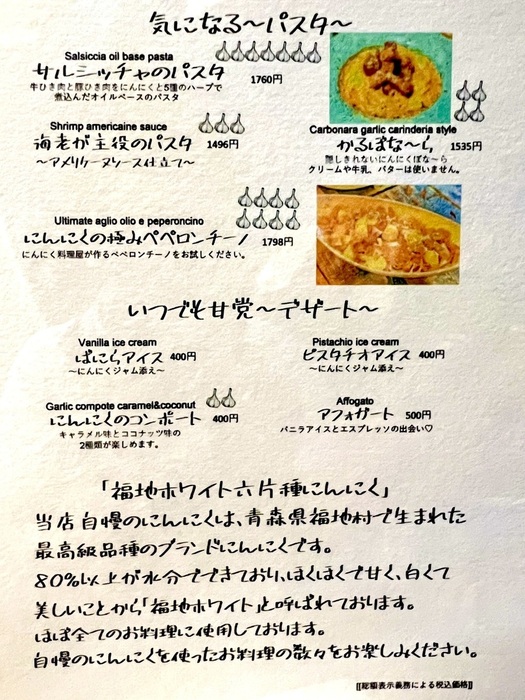 気になる～パスタ～
Salsiccia oil base pasta
サルシッチャのパスタ
1760円
牛ひき肉と豚ひき肉をにんにくと5種のハーブで
煮込んだオイルベースのパスタ
Shrimp americaine sauce
海老が主役のパスタ 1496円
～アメリケーヌソース仕立て～
Carbonara garlic carinderia style
かるぼな～ら 1535円
隠しきれないにんにくぼな～ら
クリームや牛乳、バターは使いません。
Ultimate aglio olio e peperoncino
にんにくの極みペペロンチーノ 1798円
にんにく料理屋が作るペペロンチーノをお試しください。
いつでも甘党～デザート～
Vanilla ice cream
ばにらアイス 400円
～にんにくジャム添え～
Pistachio ice cream
ピスタチオアイス 400円
～にんにくジャム添え～
Garlic compote caramel&coconut
にんにくのコンポート 400円
キャラメル味とココナッツ味の
2種類が楽しめます。
Affogato
アフォガート 500円
バニラアイスとエスプレッソの出会い♡
「福地ホワイト六片種にんにく」
当店自慢のにんにくは、青森県福地村で生まれた
最高級品種のブランドにんにくです。
80%以上が水分でできており、ほくほくで甘く、白くて
美しいことから「福地ホワイト」と呼ばれております。
ほぼ全てのお料理に使用しております。
自慢のにんにくを使ったお料理の数々をお楽しみください。
[[総額表示義務による税込価格]]